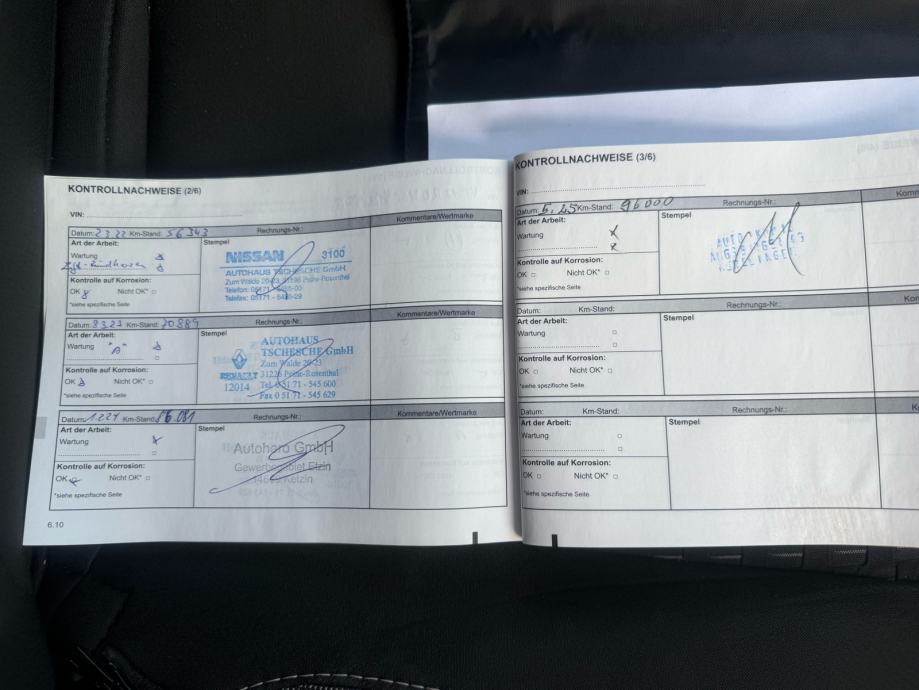 KONTROLLNACHWEISE (2/6)
VIN:
Datum: 2322 Km-Stand: 56343 Rechnungs-Nr.: Kommentare/Wertmarke
Art der Arbeit:
Wartung
Kontrolle auf Korrosion:
OK Nicht OK*
*siehe spezifische Seite
Stempel
NISSAN 3100
AUTOHAUS TSCHESCHE GmbH
Zum Walde 20-23, 31226 Peine-Rosenthal
Telefon: 05171 -
Telefax: 05171 -
Datum: 8323 Km-Stand: 70889 Rechnungs-Nr.: Kommentare/Wertmarke
Art der Arbeit:
Wartung "A"
Kontrolle auf Korrosion:
OK Nicht OK*
*siehe spezifische Seite
Stempel
AUTOHAUS
TSCHESCHE GmbH
Zum Walde 20-23
31226 Peine-Rosenthal
RENAULT
12014 Tel. 0 51 71 - 545 600
Fax 0 51 71 - 545 629
Datum: 1224 Km-Stand: 86081 Rechnungs-Nr.: Kommentare/Wertmarke
Art der Arbeit:
Wartung
Kontrolle auf Korrosion:
OK Nicht OK*
*siehe spezifische Seite
Stempel
Autohero GmbH
Gewerbegebiet Etzin
Ketzin
6.10
KONTROLLNACHWEISE (3/6)
VIN:
Datum: 5.25 Km-Stand: 96000 Rechnungs-Nr.:
Art der Arbeit:
Wartung
Kontrolle auf Korrosion:
OK Nicht OK*
*siehe spezifische Seite
Stempel
Datum: Km-Stand: Rechnungs-Nr.:
Art der Arbeit:
Wartung
Kontrolle auf Korrosion:
OK Nicht OK*
*siehe spezifische Seite
Stempel
Datum: Km-Stand: Rechnungs-Nr.:
Art der Arbeit:
Wartung
Kontrolle auf Korrosion:
OK Nicht OK*
*siehe spezifische Seite
Stempel